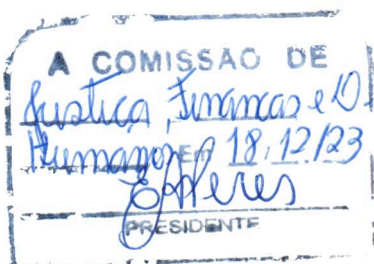 A COMISSAO DE
Justiça, Finanças e D.
Humanos Em 18/12/23
PRESIDENTE